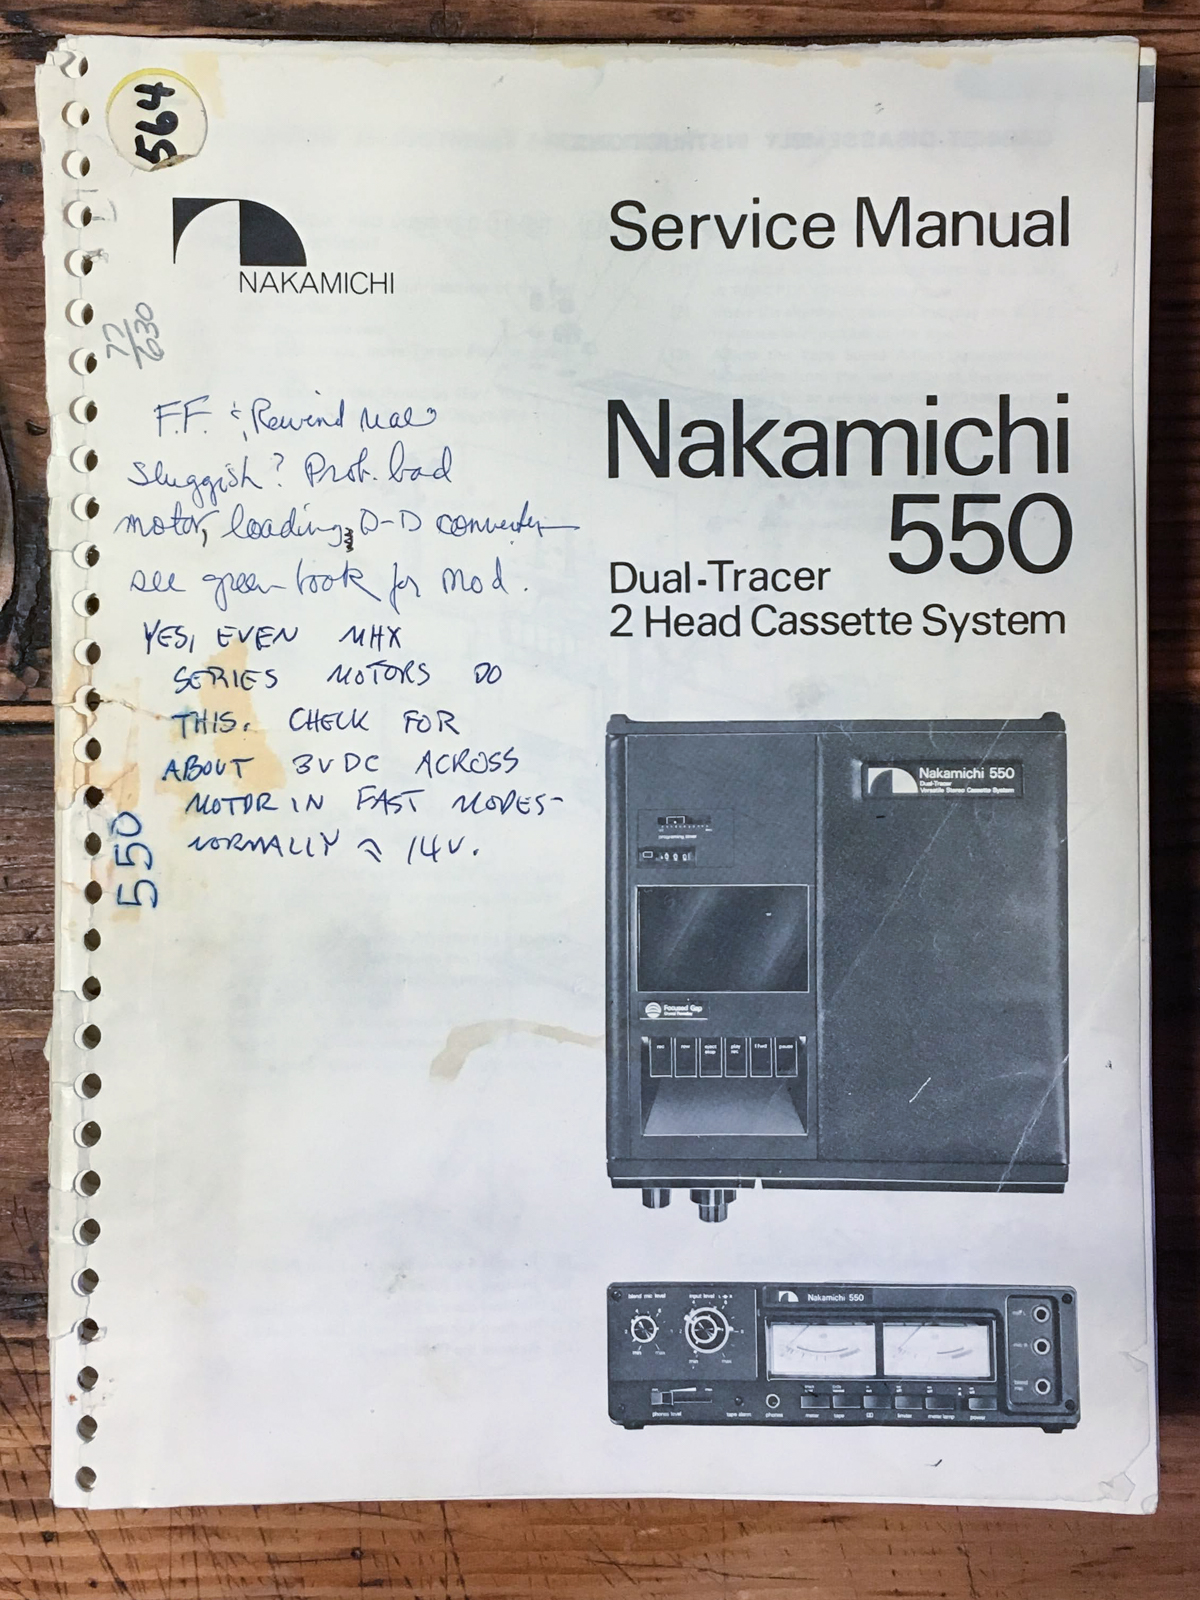 564
NAKAMICHI
Service Manual
77/630
F.F. & Rewind
sluggish? Prob. bad
motor, loading D-D converter
see green book for mod.
YES, EVEN MHX
SERIES MOTORS DO
THIS. CHECK FOR
ABOUT 3VDC ACROSS
MOTOR IN FAST MODES-
NORMALLY ≈ 14V.
550
Nakamichi
550
Dual-Tracer
2 Head Cassette System
Nakamichi 550
Dual-Tracer
Versatile Stereo Cassette System
Focused Gap
rec rew eject stop play f.fwd pause
Nakamichi 550
blend mic level input level
min max min max
phones level tape alarm phones meter tape limiter meter lamp power
blend mic